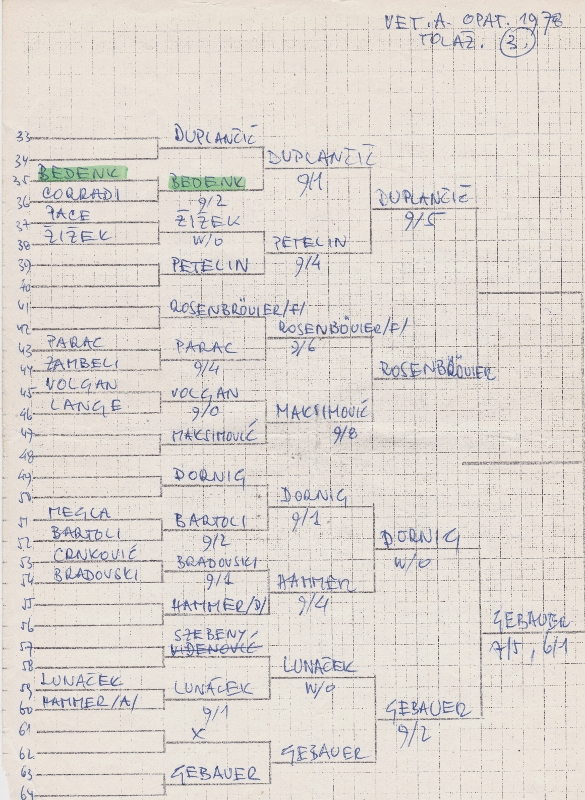 VET. A. OPAT. 1978
TOLAŽ. 3.
33 DUPLANČIČ
34 DUPLANČIČ
35 BEDENK 9/1
BEDENK
36 CORRADI 9/2 DUPLANČIČ
37 PACE ŽIŽEK 9/5
38 ŽIŽEK W/O PETELIN
39 PETELIN 9/4
40
41 ROSENBRÖVIER/F/
42 ROSENBÖVIER/F/
43 PARAC PARAC
44 ZAMBELI 9/4 ROSENBRÖVIER
45 VOLGAN VOLGAN
46 LANGE 9/0 MAKSIMOVIĆ
49 MAKSIMOVIĆ 9/8
48
49 DORNIG
50 DORNIG
51 MEGLA BARTOLI 9/1
52 BARTOLI 9/2 DORNIG
53 CRNKOVIĆ BRADOVSKI W/O
54 BRADOVSKI 9/1 HAMMER
55 HAMMER/D/ 9/4
56
57 SZEBENY GEBAUER
VIDENOVIĆ 7/5, 6/1
58 LUNAČEK
59 LUNAČEK LUNAČEK W/O
60 HAMMER/A/ 9/1 GEBAUER
61 X 9/2
62 GEBAUER
63 GEBAUER
64